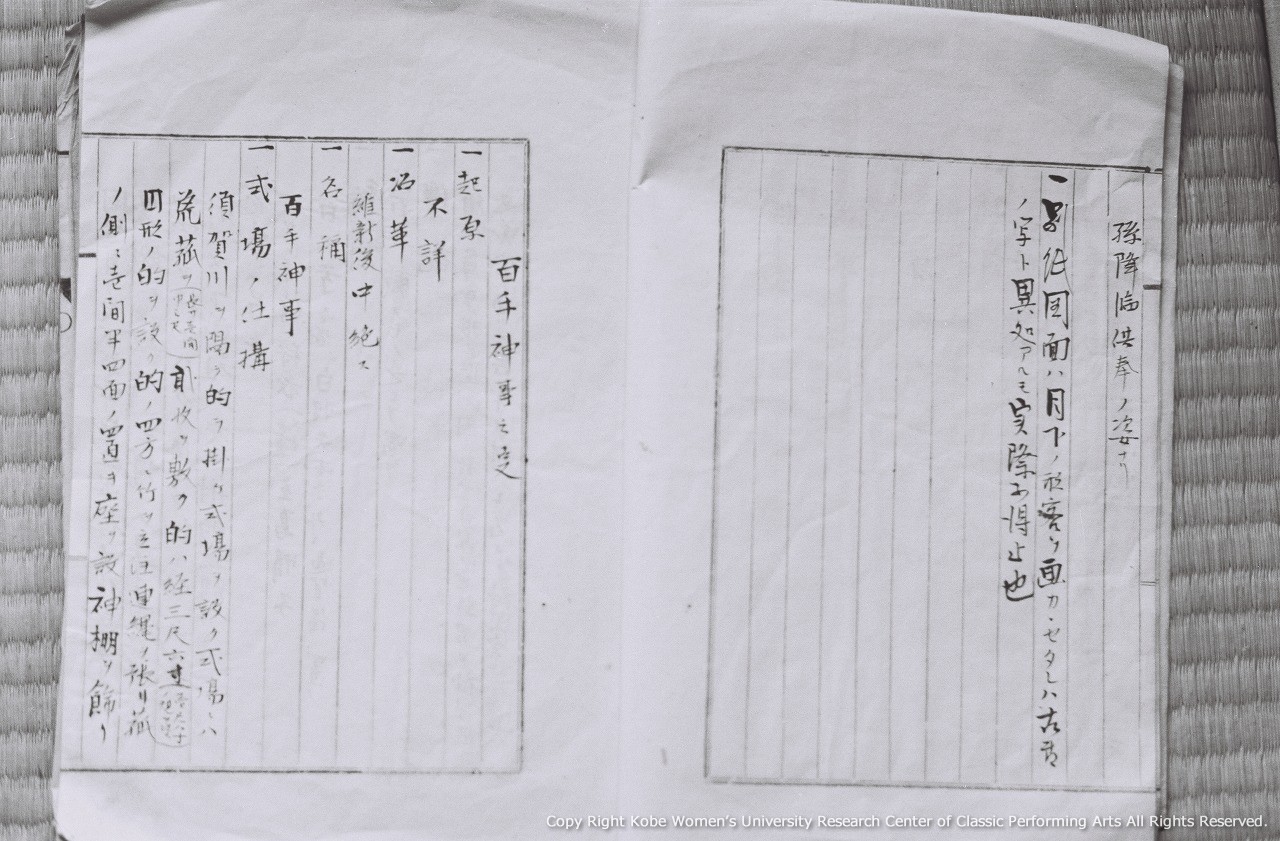 孫降臨供奉ノ姿ナリ
一別紙図面ハ月下ノ画カセタレハ古昔
ノ写ト異如アルモ実際不得止也
百手神事之
一起原
不詳
一沿革
維新後中絶ス
一名称
百手神事
一式場ノ仕構
須賀川ヲ隔テ的ヲ掛ケ式場ヲ設ク式場ニハ
荒菰ヲ 枚ヲ敷ク的ハ経三尺六寸
円形ノ的ヲ設ク的ノ四方ニ竹ヲ立注連縄ヲ張リ菰
ノ側ニ壱間半四面ノ置キ座ヲ設神棚ヲ飾リ
Copy Right Kobe Women's University Research Center of Classic Performing Arts All Rights Reserved.